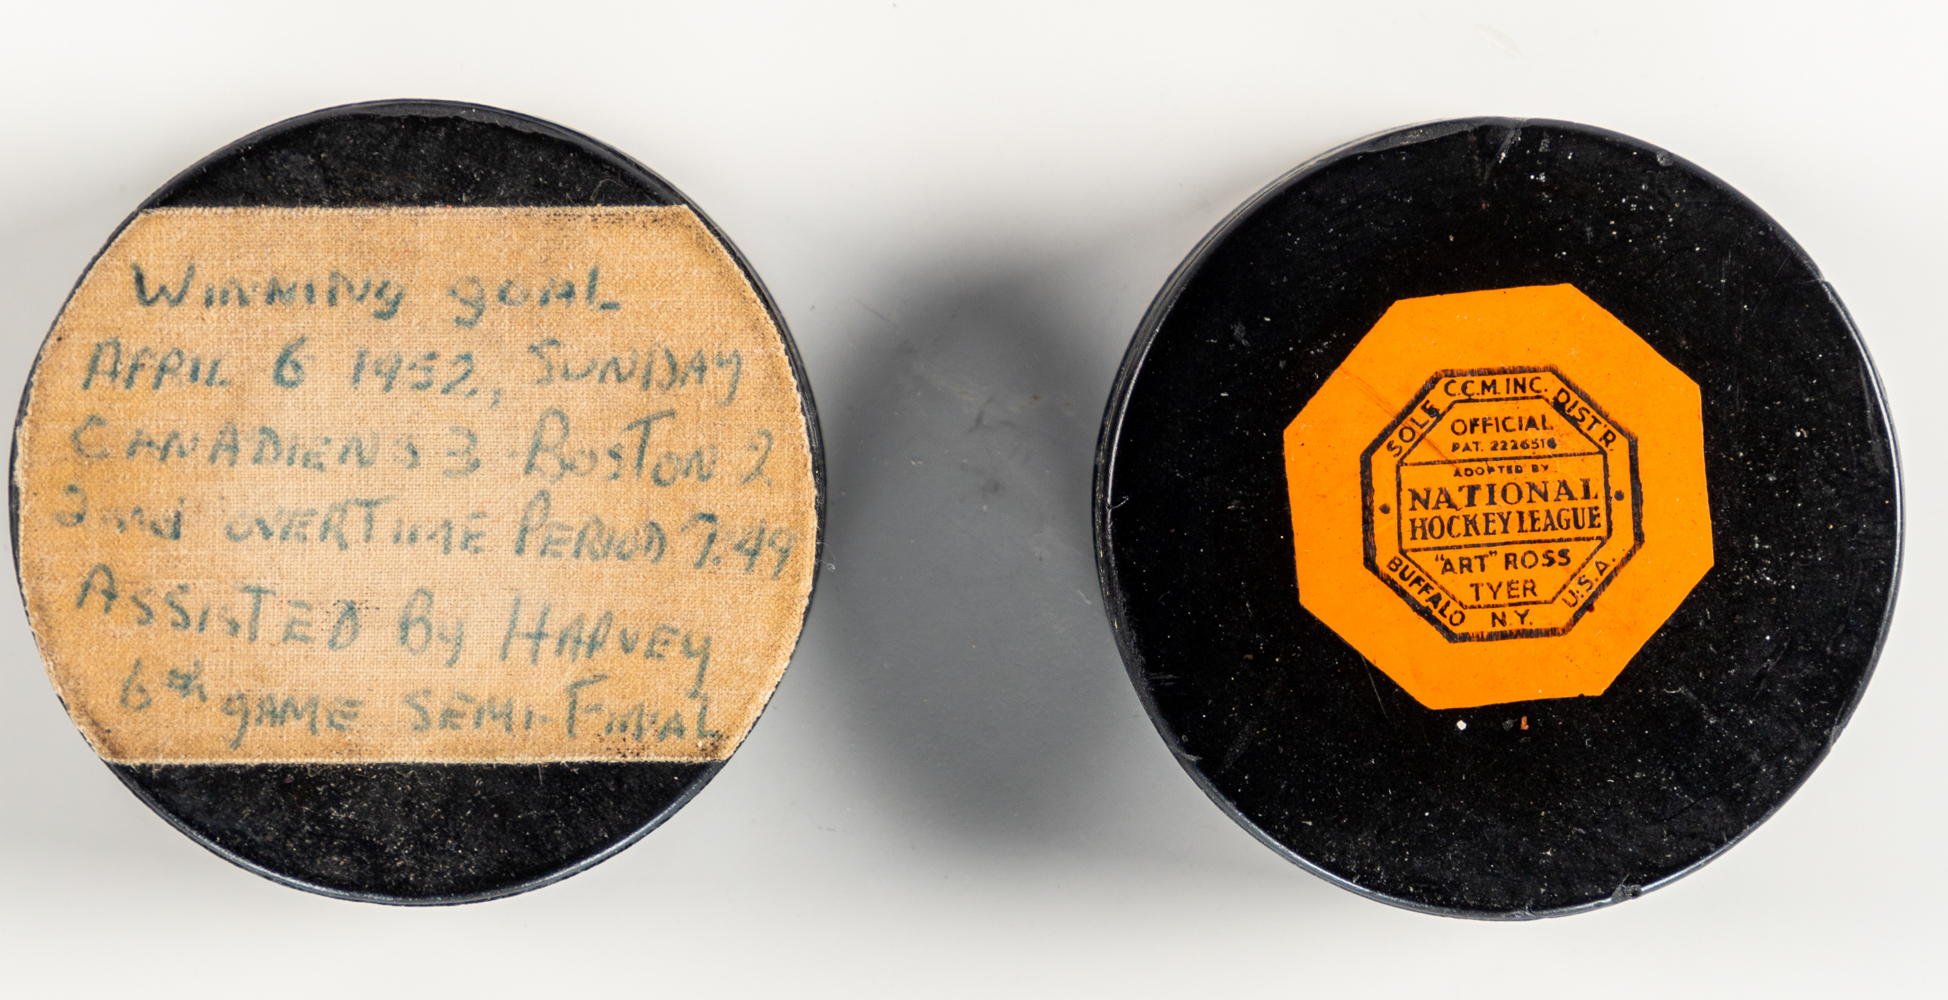 WINNING gOAL
APRIL 6 1952, SUNDAY
CANADIENS 3 - BOSTON 2
2nd OVERTIME PERIOD 7.49
ASSISTED By HARVEY
6th gAME SEMI-FINAL
SOLE C.C.M. INC. DIST'R.
OFFICIAL
PAT. 2226516
ADOPTED BY
NATIONAL
HOCKEY LEAGUE
"ART" ROSS
TYER
BUFFALO N.Y. U.S.A.